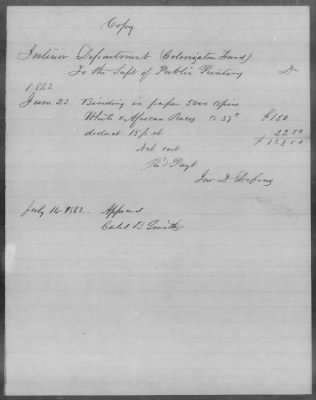 Copy
Interior Department (Colonization Fund)
To the Supt of Public Printing Dr
1862
June 23. Binding in paper 5000 copies
White & African Races $150
deduct 15 p ct 22.50
Net cost $127.50
Rc'd Payt
Jno D. Defrees
July 16. 1862. Approved
Caleb B Smith